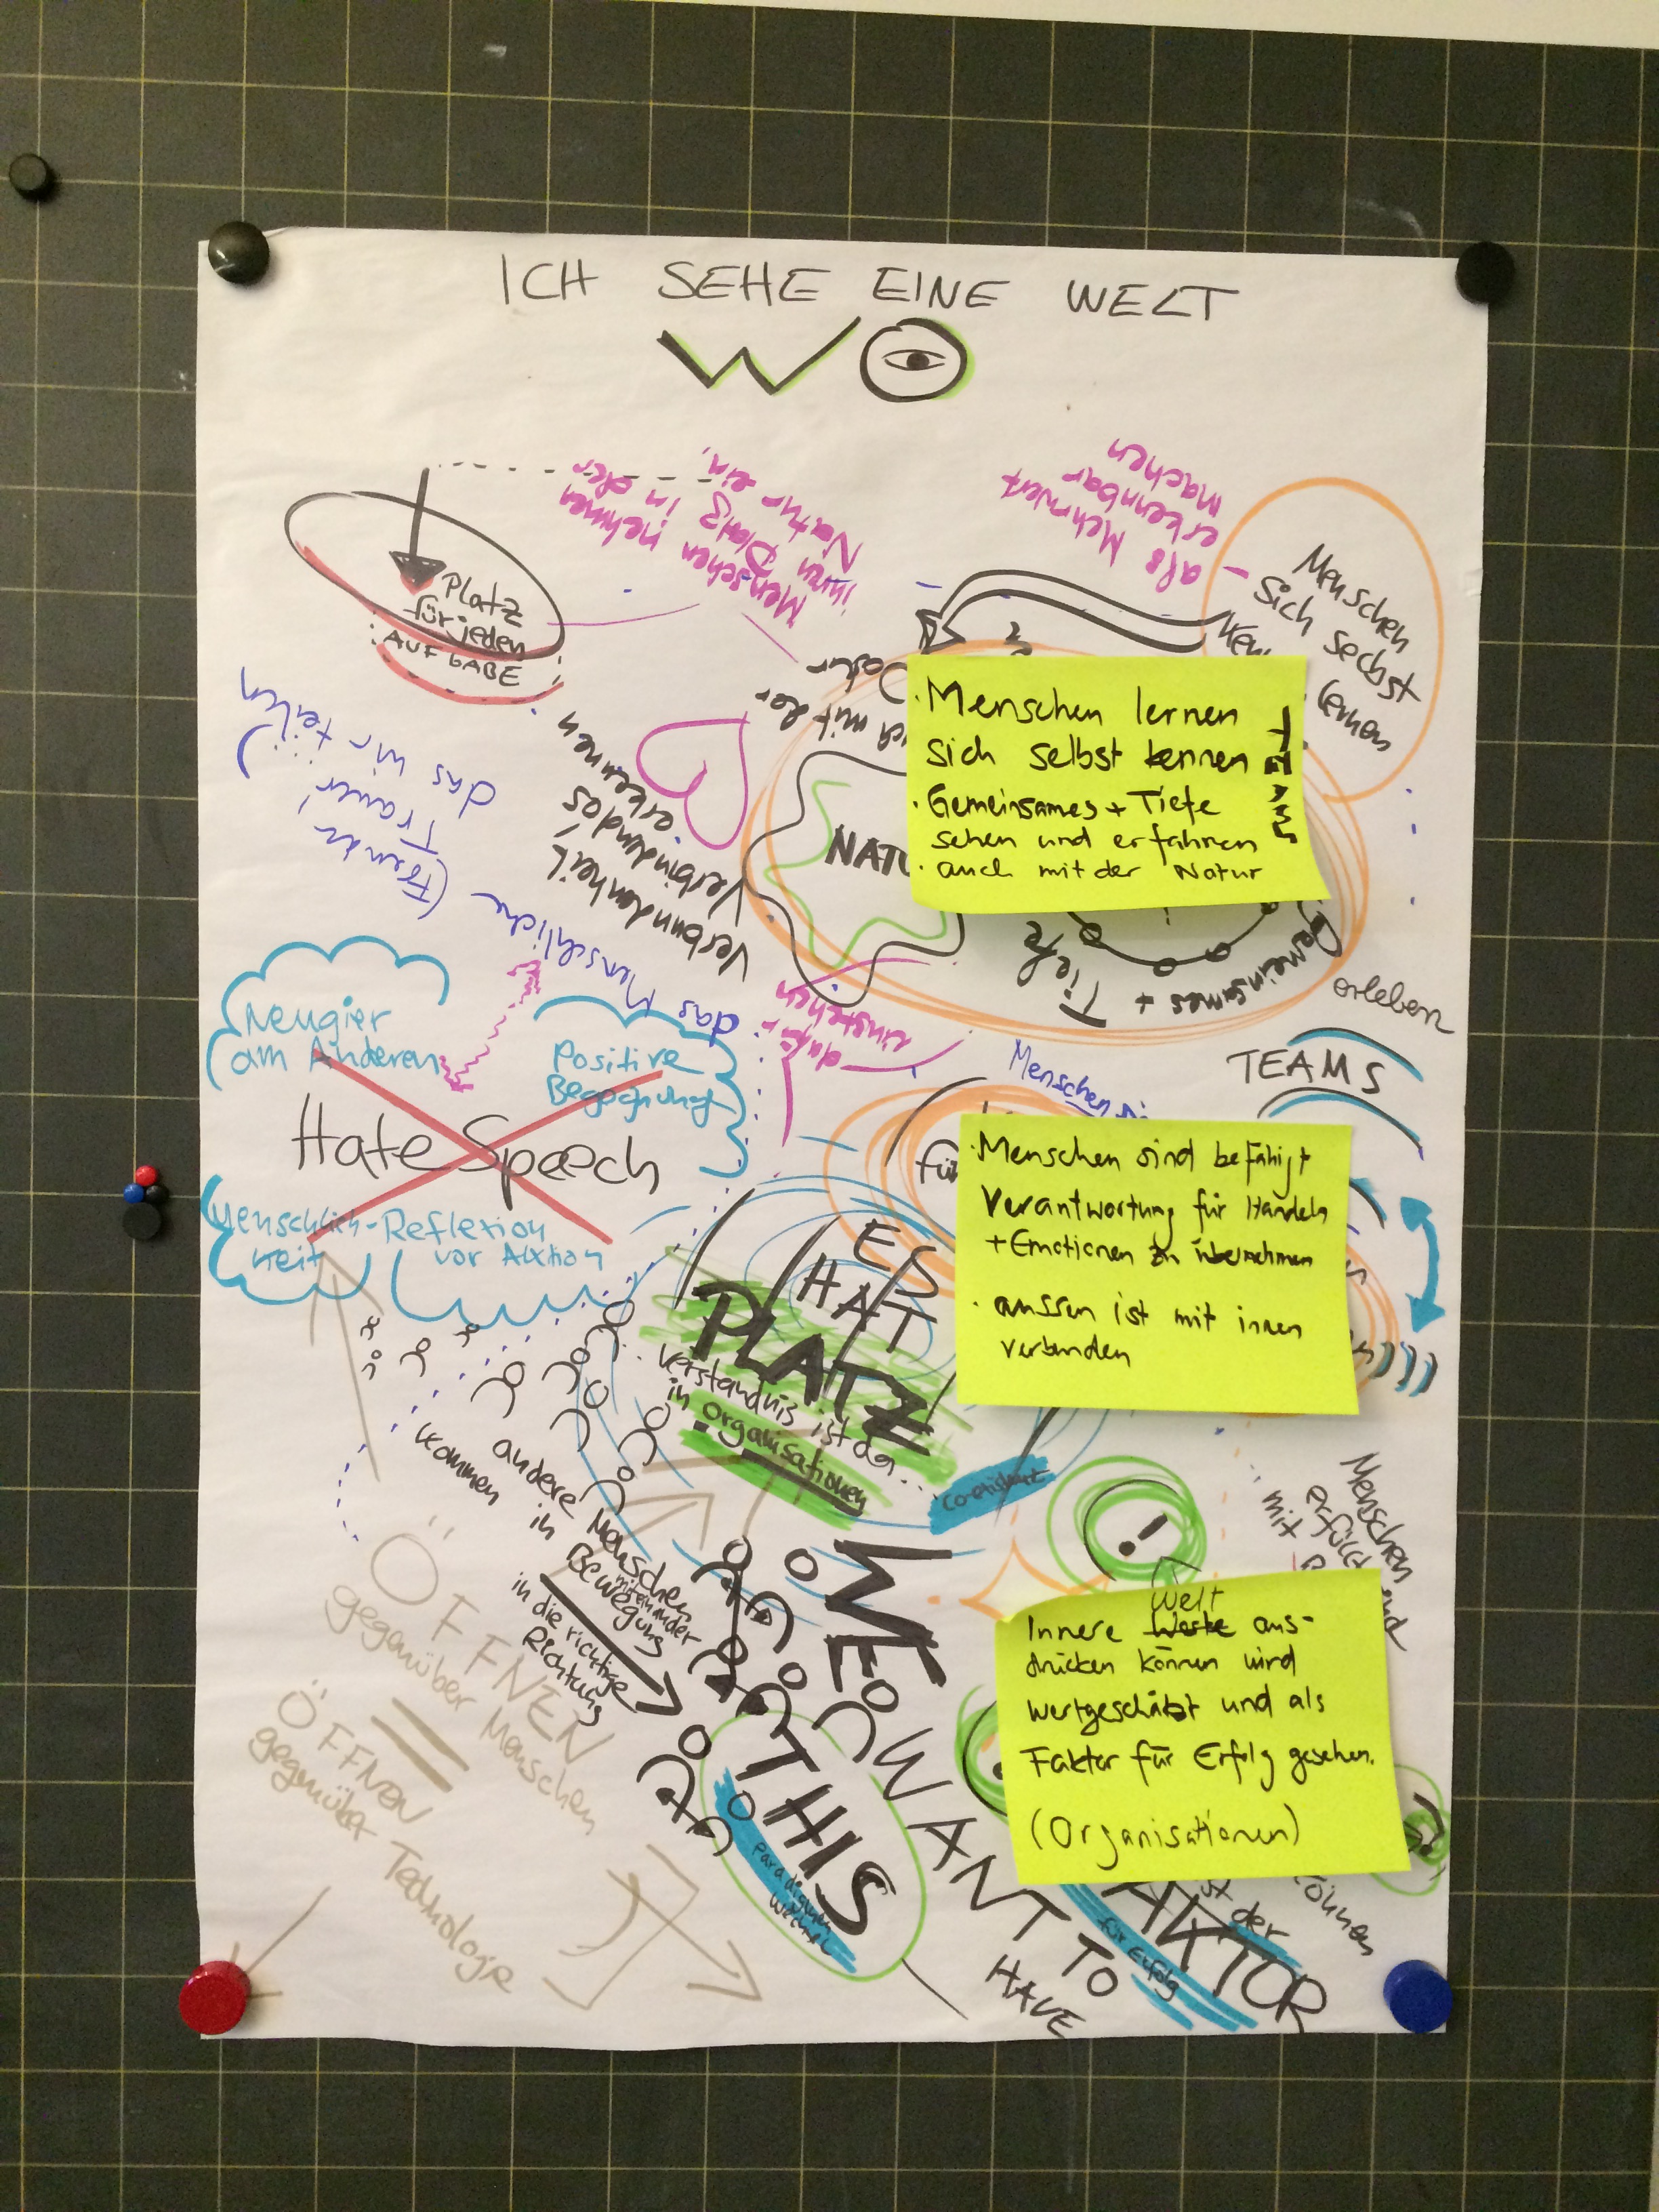 ICH SEHE EINE WELT
WO
Menschen nehmen
ihren Platz in der
Natur ein,
als Mehrwert
erkennbar
machen
Menschen
Sich sechst
lernen
Platz
für jeden
AUFGABE
das Menschliche (Freude,
Trauer)
das wir teilen
Verbundenheit,
Verbindendes
erkennen
mit der
NATU
· Menschen lernen
sich selbst kennen
· Gemeinsames + Tiefe
sehen und erfahren
· auch mit der Natur
TEAMS
Gemeinsames +
Tiefe
erleben
dafür
einstehen
Neugier
am Anderen
Positive
Begegnung
Hate Speech
Menschlich-
keit
Reflexion
vor Aktion
Menschen
TEAMS
· Menschen sind befähigt
Verantwortung für Handeln
+ Emotionen zu übernehmen
· aussen ist mit innen
verbunden
ES
HAT
PLATZ
Verständnis ist da...
in Organisationen
andere Menschen
kommen in Bewegung
miteinander
in die richtige
Richtung
Menschen
erfüllt
mit
!
Welt
Innere Werte aus-
drücken können wird
wertgeschätzt und als
Faktor für Erfolg gesehen.
(Organisationen)
ÖFFNEN
gegenüber Menschen
=
ÖFFNEN
gegenüber Technologie
WE
WANT
TO
HAVE
THIS
Paradigmen
Wechsel
ist der
können
AKTOR
für Erfolg